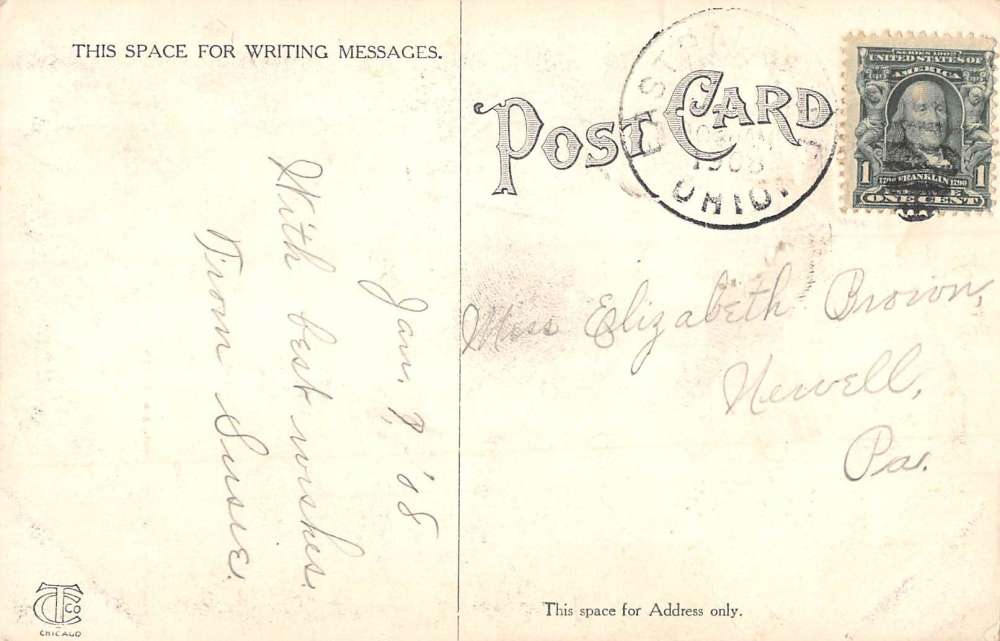 THIS SPACE FOR WRITING MESSAGES.
Jan. 9, '08
With best wishes.
From Susie.
POST CARD
1908
OHIO.
SERIES 1902
UNITED STATES OF
AMERICA
1 FRANKLIN 1790 1
ONE CENT
Miss Elizabeth Brown,
Newell,
Pa.
This space for Address only.
CTCo
CHICAGO